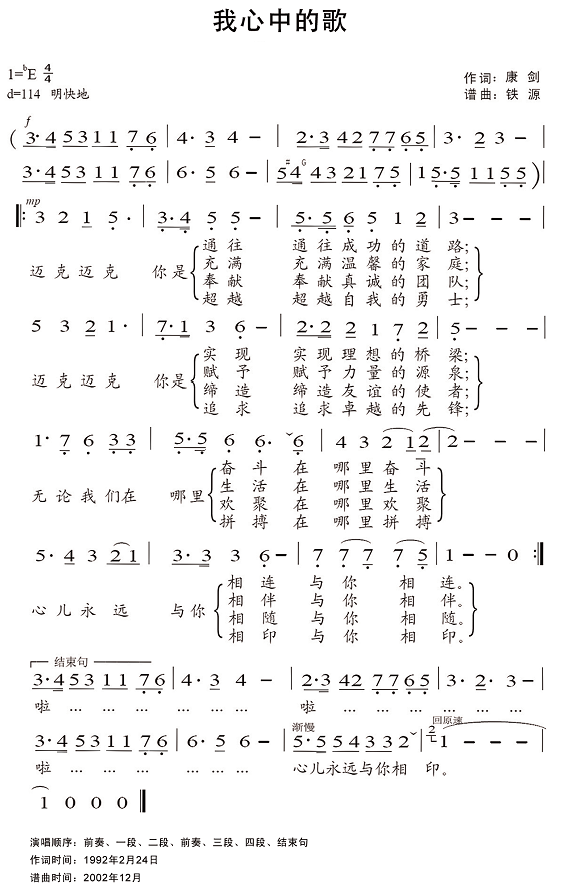 我心中的歌
1=ᵇE 4/4
d=114 明快地
作词：康 剑
谱曲：铁 源
f
( 3·4 5 3 1 1 7 6 | 4· 3 4 − | 2·3 4 2 7 7 6 5 | 3· 2 3 − |
3·4 5 3 1 1 7 6 | 6· 5 6 − | 5 #4 G 4 3 2 1 7 5 | 1 5·5 1 1 5 5 )
mp
‖: 3 2 1 5· | 3·4 5 5 − | 5·5 6 5 1 2 | 3 − − |
通往 通往成功的道路;
迈克迈克 你是 充满 充满温馨的家庭;
奉献 奉献真诚的团队;
超越 超越自我的勇士;
5 3 2 1· | 7·1 3 6 − | 2·2 2 1 7 2 | 5 − − |
实现 实现理想的桥梁;
迈克迈克 你是 赋予 赋予力量的源泉;
缔造 缔造友谊的使者;
追求 追求卓越的先锋;
1· 7 6 3 3 | 5·5 6 6· ˇ6 | 4 3 2 1 2 | 2 − − |
奋斗 在 哪里奋斗
无论我们在 哪里 生活 在 哪里生活
欢聚 在 哪里欢聚
拼搏 在 哪里拼搏
5· 4 3 2 1 | 3·3 3 6 − | 7 7 7 7 5 | 1 − − 0 :‖
相连 与你 相连。
心儿永远 与你 相伴 与你 相伴。
相随 与你 相随。
相印 与你 相印。
结束句
3·4 5 3 1 1 7 6 | 4· 3 4 − | 2·3 4 2 7 7 6 5 | 3· 2 3 − |
啦 … … … … … 啦 … … … … …
渐慢 回原速
3·4 5 3 1 1 7 6 | 6· 5 6 − | 5·5 5 4 3 3 2ˇ | 2 1 − − − |
啦 … … … … … 心儿永远与你相 印。
1 0 0 0 ‖
演唱顺序：前奏、一段、二段、前奏、三段、四段、结束句
作词时间：1992年2月24日
谱曲时间：2002年12月